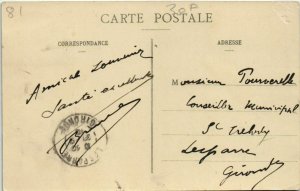 81
CARTE POSTALE
CORRESPONDANCE
ADRESSE
Amical souvenir
Santé excellente
Monsieur Tourverelle
Conseiller Municipal
St
Lesparre
Gironde
GIRONDE